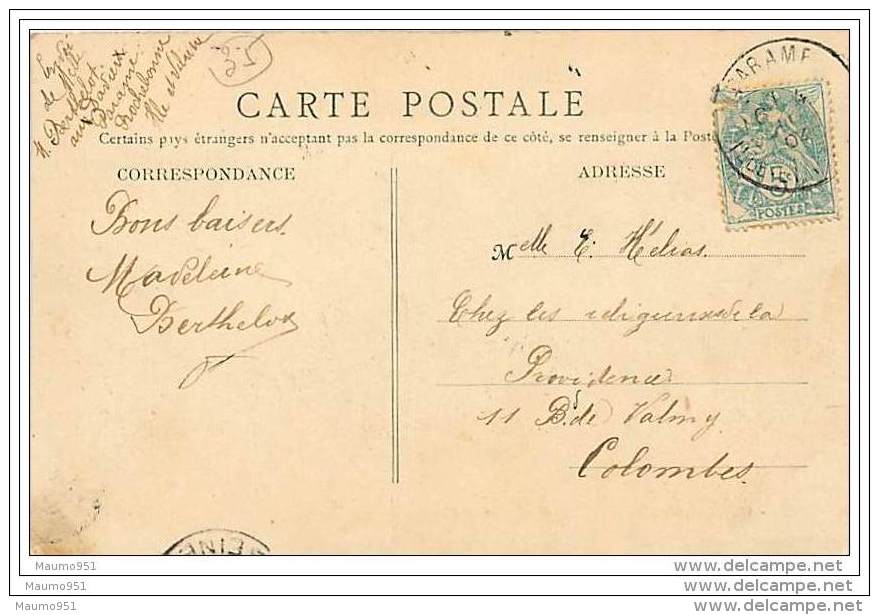 Envoi
de Mlle
M. Berthelot
aux Pavieux
Paramé
Rochebonne
Ille et Vilaine
35
CARTE POSTALE
Certains pays étrangers n'acceptant pas la correspondance de ce côté, se renseigner à la Poste
CORRESPONDANCE
ADRESSE
PARAMÉ
04
POSTES
Bons baisers.
Madeleine
Berthelot
Melle E. Hélias.
Chez les religieuses de la
Providence
11 Bd de Valmy
Colombes
SEINE
Maumo951
Maumo951
Maumo951
delcampe.net
delcampe.net
delcampe.net